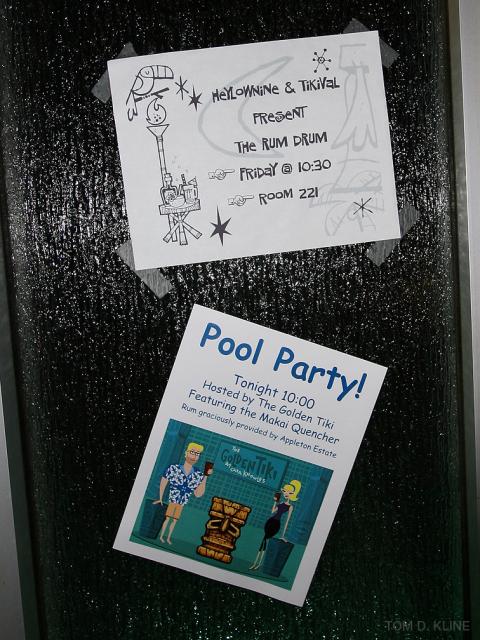 HeyLownine & Tikival
Present
The Rum Drum
Friday @ 10:30
Room 221
Pool Party!
Tonight 10:00
Hosted by The Golden Tiki
Featuring the Makai Quencher
Rum graciously provided by Appleton Estate
The
Golden Tiki
TOM D. KLINE